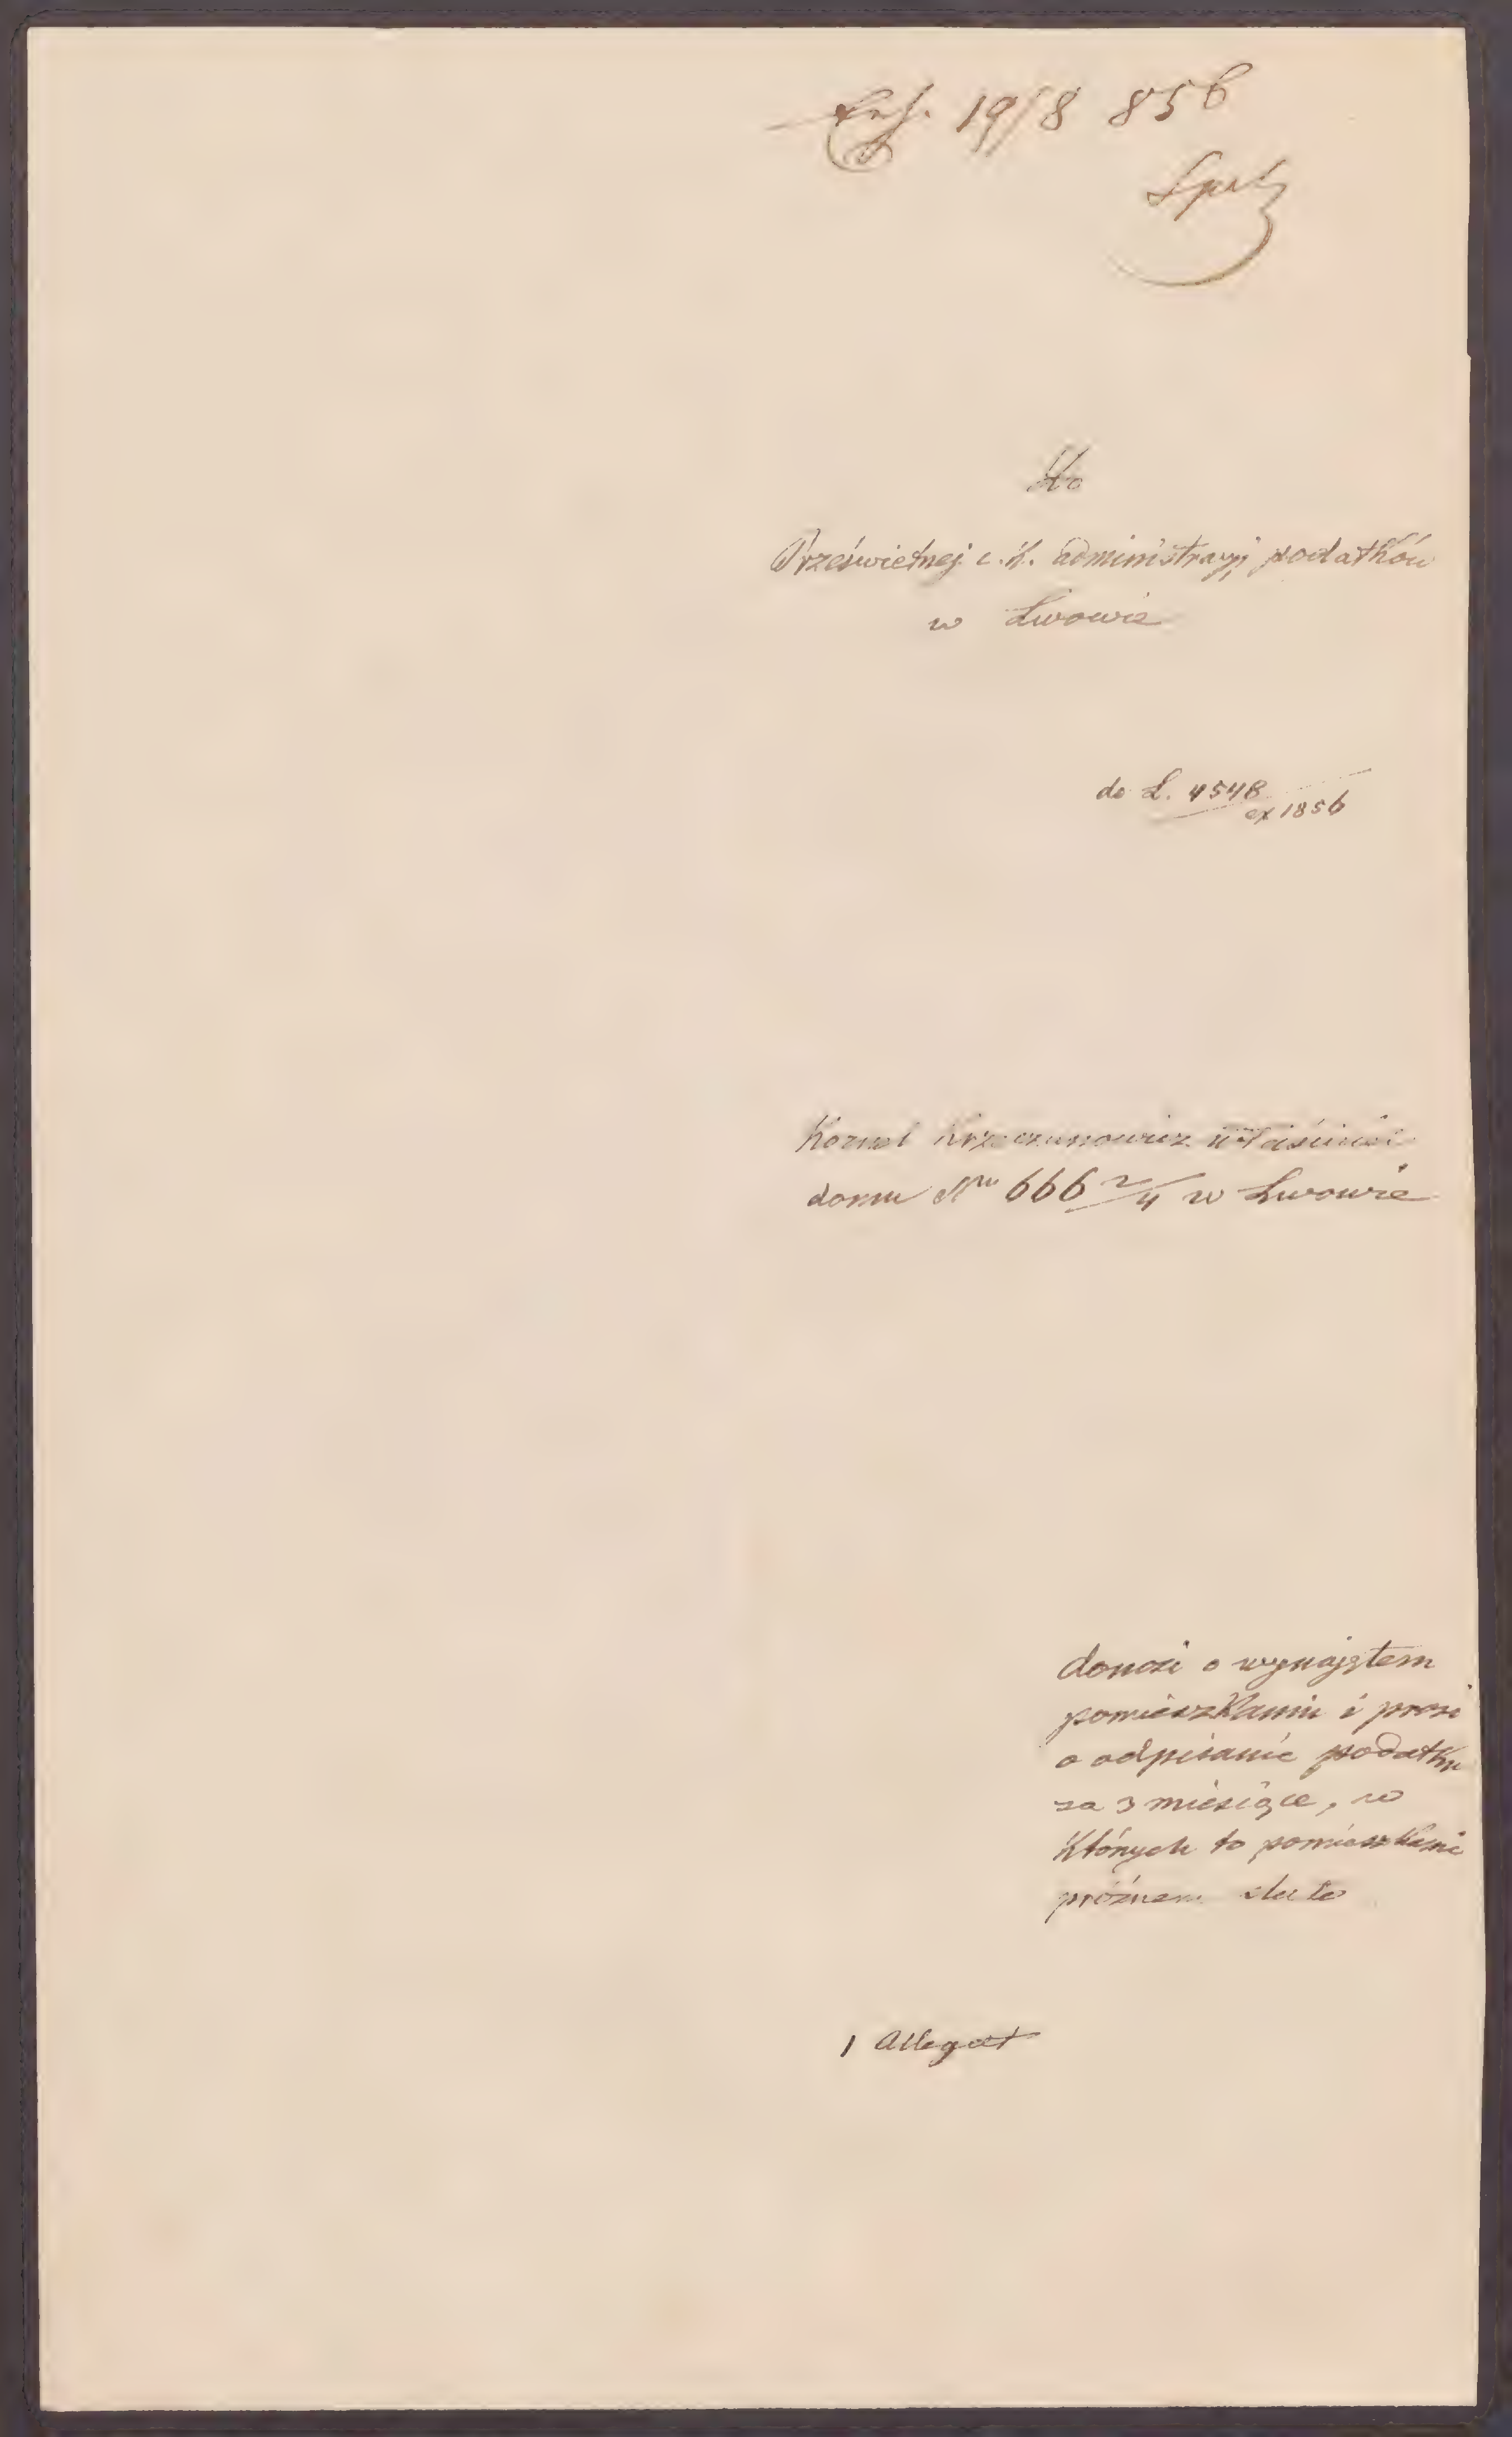 19/8 856
Do
Prześwietnej c. k. administracyi podatków
w Lwowie
do L. 4548
ex 1856
Kornel Krzeczunowicz właściciel
domu Nro 666 2/4 w Lwowie
donosi o wynajętem
pomieszkaniu i prosi
o odpisanie podatku
za 3 miesiące, w
których to pomieszkanie
próżnem stało
1 Allegat